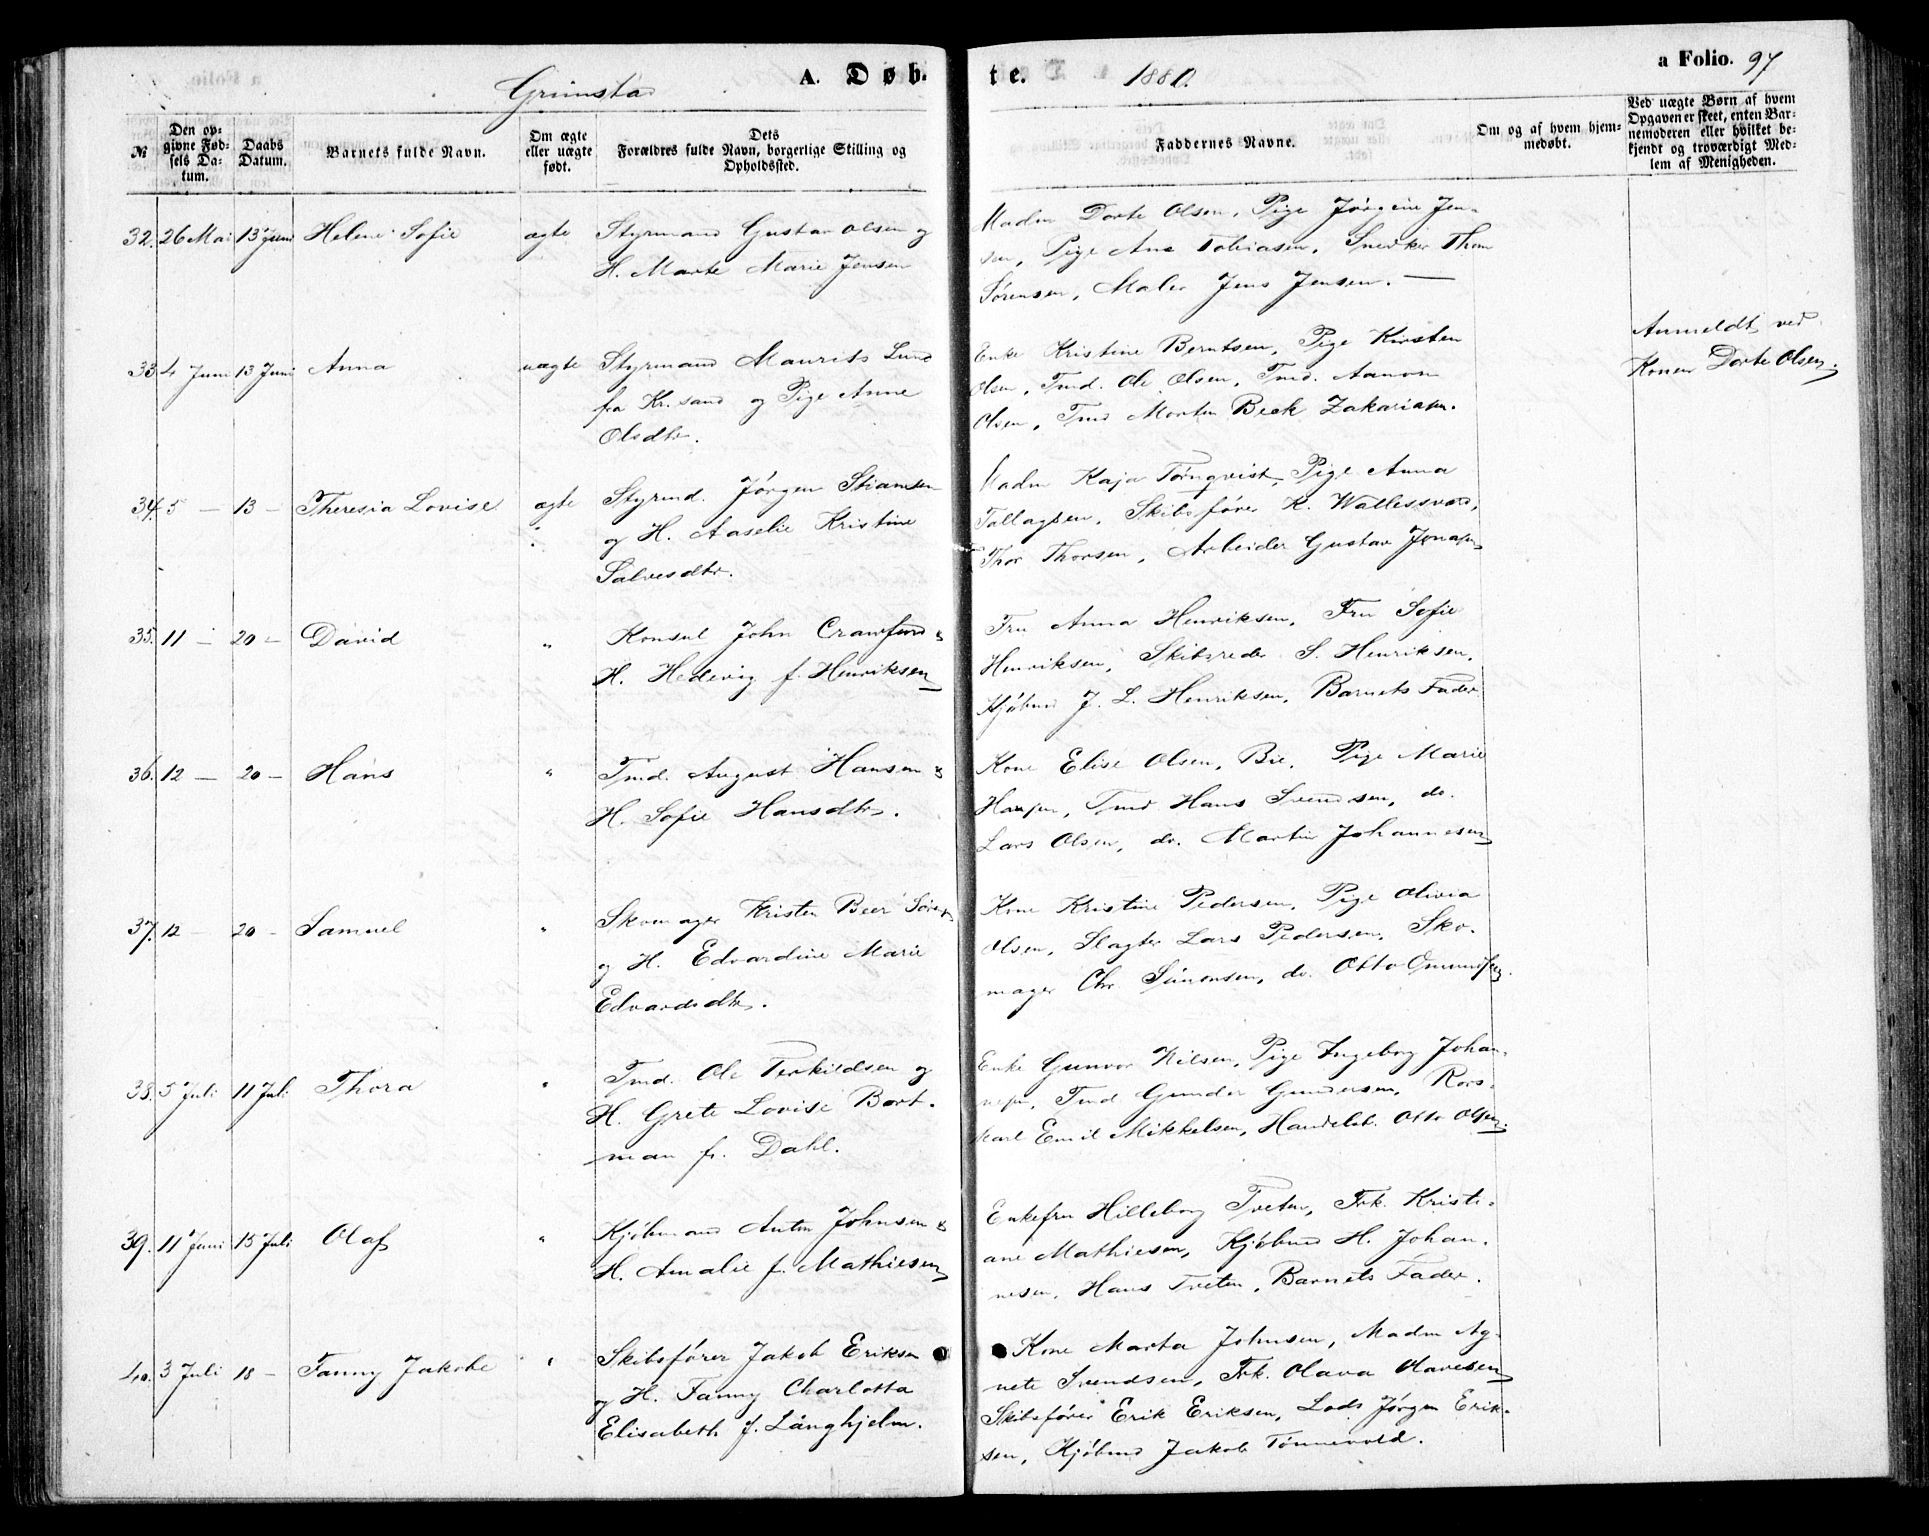 Grimstad
A. Døb-
te.
1880.
a Folio. 97
№
Den op-
givne Fød-
sels Da-
tum.
Daabs
Datum.
Barnets fulde Navn.
Om ægte
eller uægte
født.
Dets
Forældres fulde Navn, borgerlige Stilling og
Opholdssted.
Faddernes Navne.
Om og af hvem hjem-
medøbt.
Ved uægte Børn af hvem
Opgaven er skeet, enten Bar-
nemoderen eller hvilket be-
kjendt og troværdigt Med-
lem af Menigheden.
32. 26 Mai 13 Juni Helene Sofie ægte
Styrmand Gustav Olsen og
H. Marte Marie Jensen
Madm Dorte Olsen, Pige Jørgine Jen-
sen, Pige Ane Tobiasen, Snedker Thom
Sørensen, Maler Jens Jensen. —
33. 4 Juni 13 Juni Anna uægte
Styrmand Maurits Lund
fra Kr.sand og Pige Anne
Olsdtr.
Enke Kristine Berntsen, Pige Kirsten
Olsen, Tmd. Ole Olsen, Tmd. Aanon
Olsen, Tmd Morten Beck Zakariasen.
Anmeldt ved
Konen Dorte Olsen.
34. 5 — 13 — Theresia Lovise ægte
Styrmd. Jørgen Stiansen
og H. Aaselie Kristine
Salvesdtr.
Madm Kaja Tørnqvist, Pige Anna
Tallagsen, Skibsfører K. Wallessverd,
Thor Thorsen, Arbeider Gustav Jonasen
35. 11 — 20 — David "
Konsul John Crawfurd &
H. Hedevig f. Henriksen
Fru Anna Henriksen, Fru Sofie
Henriksen, Skibsreder S. Henriksen,
Kjøbmd J. L. Henriksen, Barnets Fader
36. 12 — 20 — Hans "
Tmd. August Hansen &
H. Sofie Hansdtr.
Kone Elise Olsen, Bie, Pige Marie
Hansen, Tmd Hans Svendsen, do.
Lars Olsen, do. Martin Johannesen
37. 12 — 20 — Samuel "
Skomager Kristen Beer Sørensen
og H. Edvardine Marie
Edvardsdtr.
Kone Kristine Pedersen, Pige Olivia
Olsen, Slagter Lars Pedersen, Sko-
mager Chr. Simonsen, do. Otto Omundsen.
38. 5 Juli 11 Juli Thora "
Tmd. Ole Terkildsen og
H. Grete Lovise Bort-
man fr. Dahl.
Enke Gunvor Nilsen, Pige Ingeborg Johan-
nesen, Tmd Gunder Gundersen, Rors-
karl Emil Mikkelsen, Handelsb. Otto Olsen.
39. 11 Juni 15 Juli Olaf "
Kjøbmand Anton Johnsen &
H. Amalie f. Mathiesen
Enkefru Hilleborg Treten, Frk. Kristi-
ane Mathiesen, Kjøbmd H. Johan-
nesen, Hans Treten, Barnets Fader.
40. 3 Juli 18 — Fanny Jakobe "
Skibsfører Jakob Eriksen
og H. Fanny Charlotta
Elisabeth f. Långhjelm.
Kone Marta Johnsen, Madm Ag-
nete Svendsen, Frk. Olava Olavesen
Skibsfører Erik Eriksen, Lods Jørgen Erik-
sen, Kjøbmd Jakob Tønnevold.